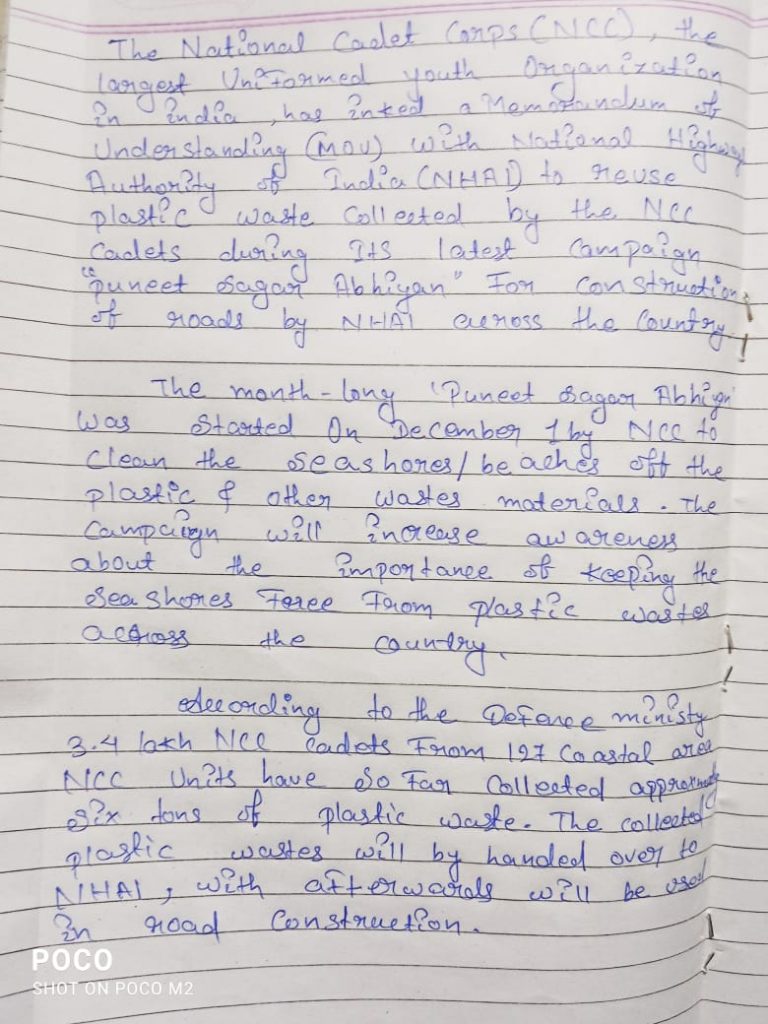 The National Cadet Corps (NCC), the
largest Uniformed youth Organization
in india, has inked a Memorandum of
Understanding (MOU) with National Highway
Authority of India (NHAI) to reuse
plastic waste Collected by the NCC
Cadets during Its latest Campaign
"Puneet Sagar Abhiyan" For construction
of roads by NHAI across the Country
The month-long 'Puneet Sagar Abhiyn'
was started On December 1 by NCC to
Clean the seashores/beaches off the
plastic & other wastes materials. The
Campaign will increase awareness
about the importance of keeping the
Seashores Free From plastic wastes
across the country.
According to the Defence ministy
3.4 lakh NCC Cadets From 127 Coastal area
NCC Units have So Far Collected
Six tons of plastic waste. The collected
plastic wastes will by handed over to
NHAI, with afterwards will be used
in road construction.
POCO
SHOT ON POCO M2